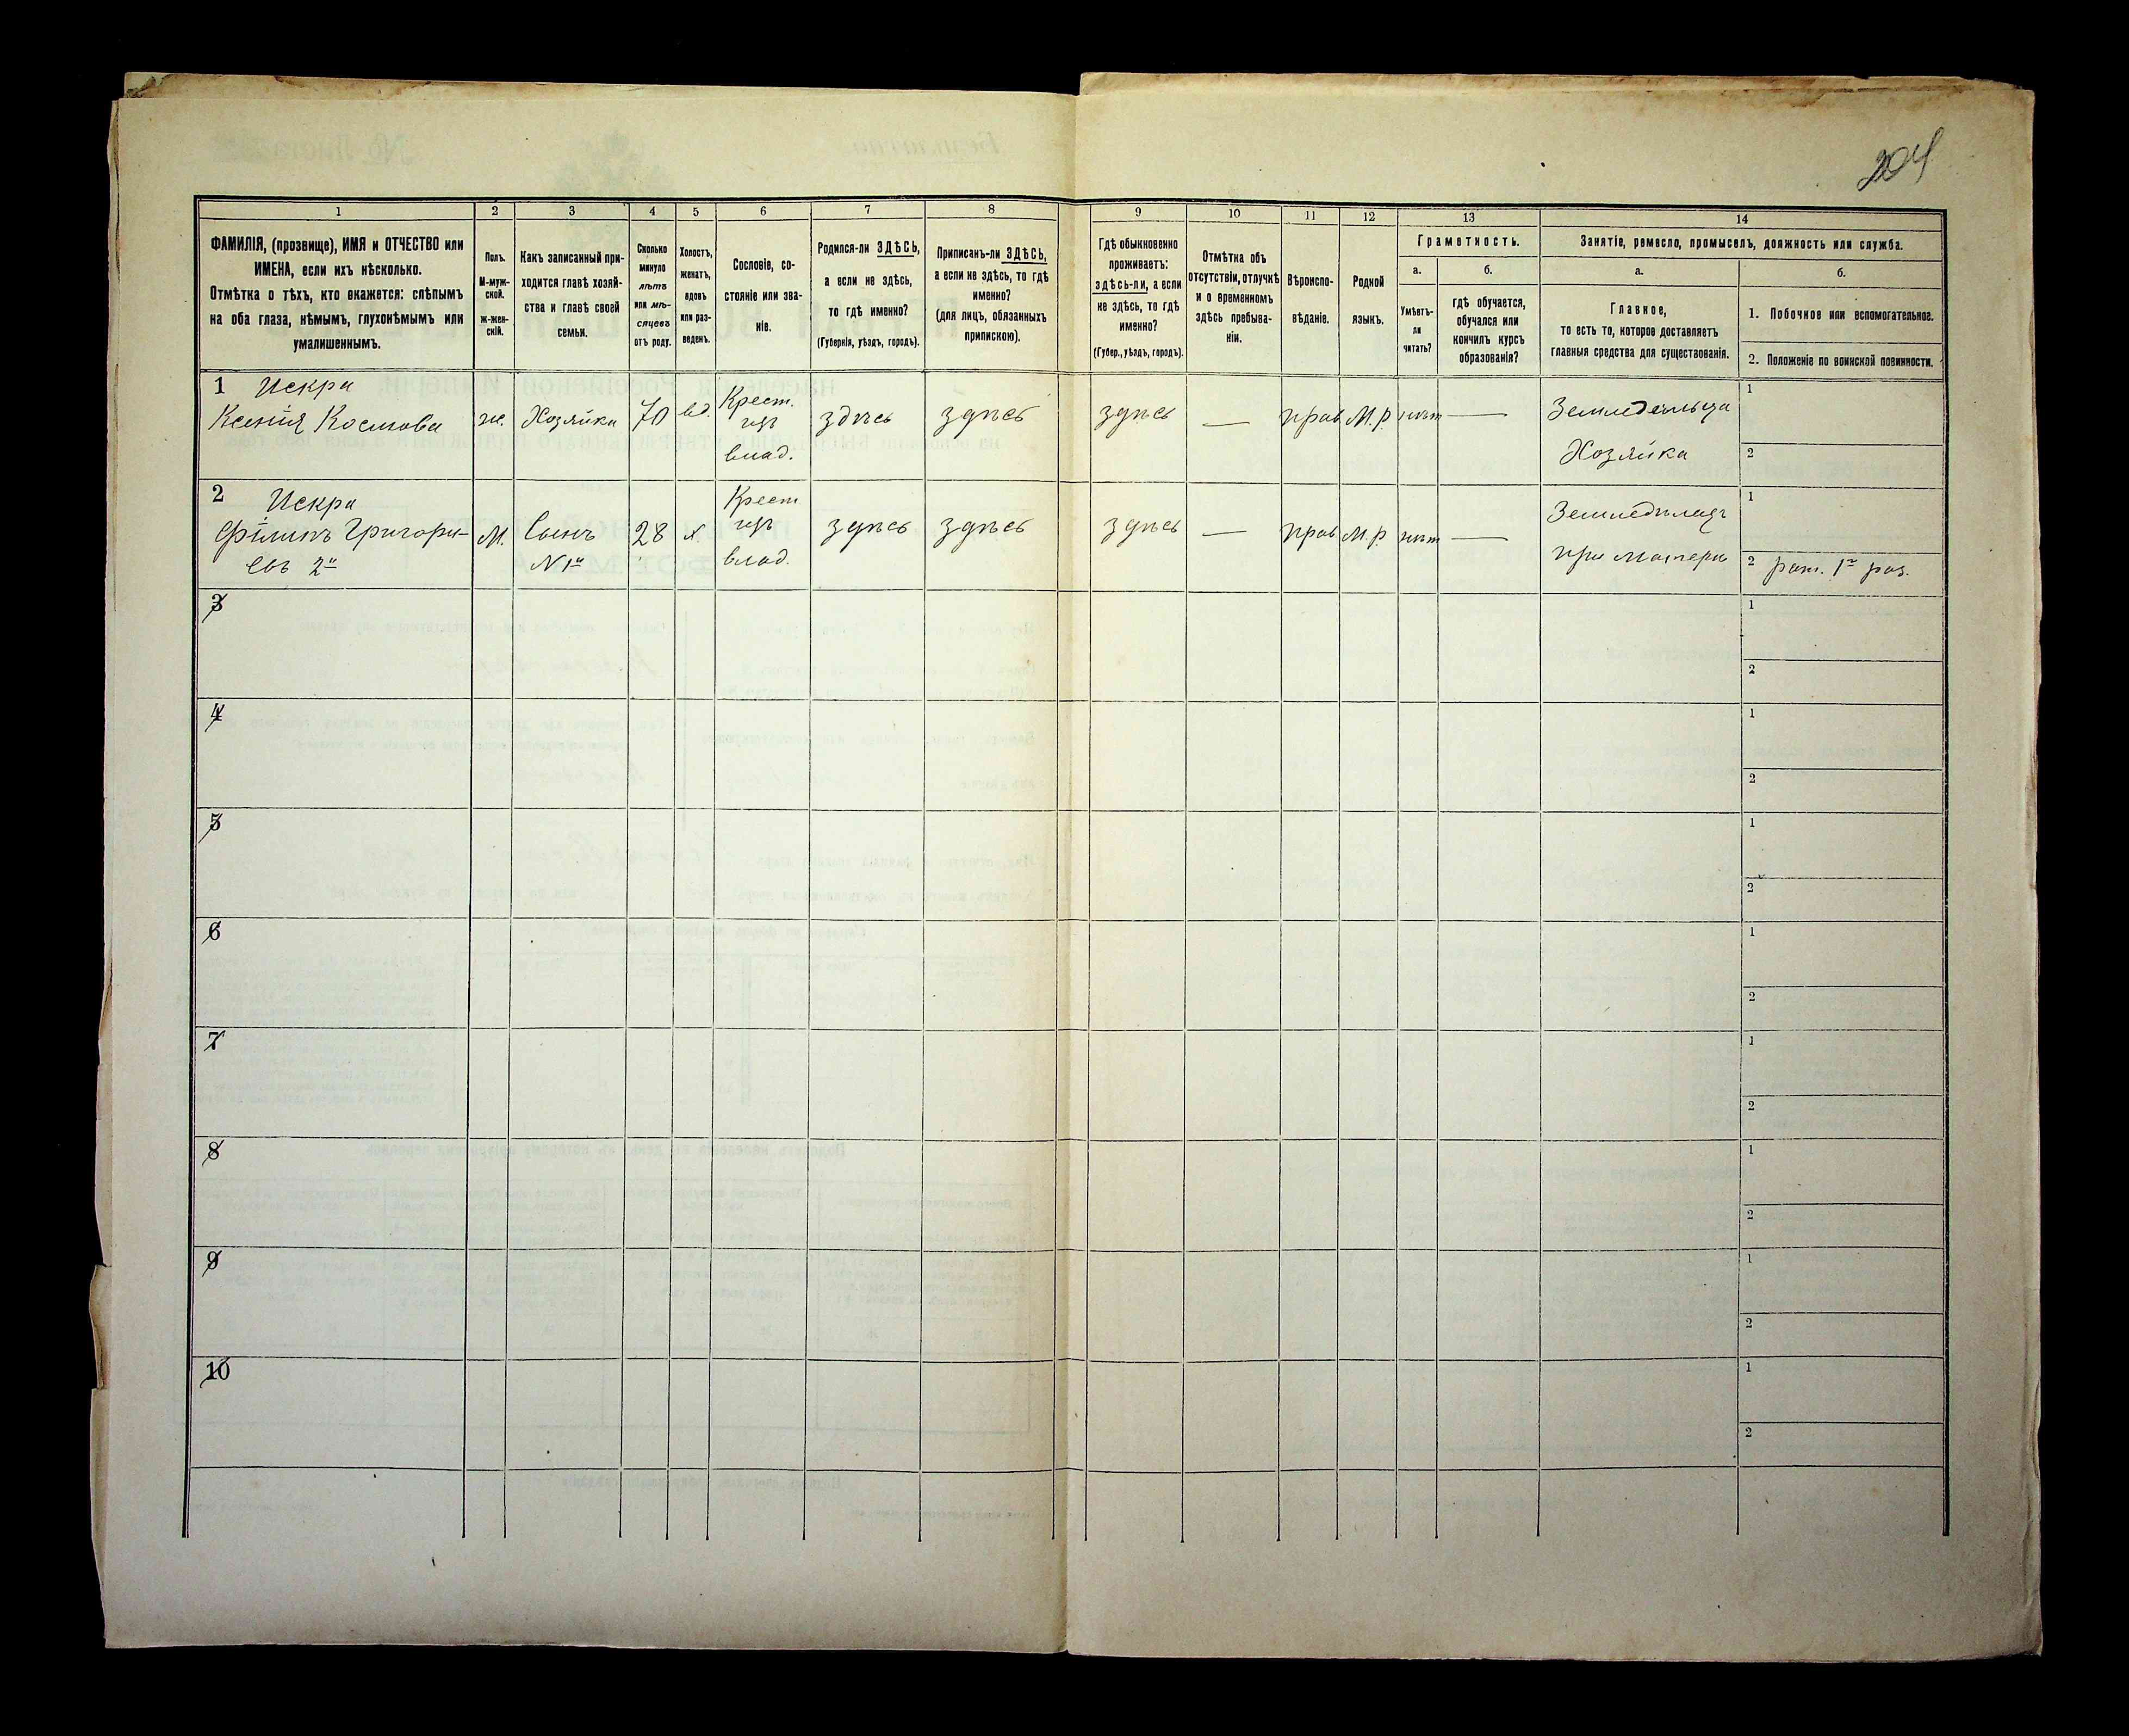 204
1
2
3
4
5
6
7
8
9
10
11
12
13
14
ФАМИЛІЯ, (прозвище), ИМЯ и ОТЧЕСТВО или
ИМЕНА, если ихъ нѣсколько.
Отмѣтка о тѣхъ, кто окажется: слѣпымъ
на оба глаза, нѣмымъ, глухонѣмымъ или
умалишеннымъ.
Полъ.
М-муж-
ской.
Ж-жен-
скій.
Какъ записанный при-
ходится главѣ хозяй-
ства и главѣ своей
семьи.
Сколько
минуло
лѣтъ
или мѣ-
сяцевъ
отъ роду.
Холостъ,
женатъ,
вдовъ
или раз-
веденъ.
Сословіе, со-
стояніе или зва-
ніе.
Родился-ли ЗДѢСЬ,
а если не здѣсь,
то гдѣ именно?
(Губернія, уѣздъ, городъ).
Приписанъ-ли ЗДѢСЬ,
а если не здѣсь, то гдѣ
именно?
(для лицъ, обязанныхъ
припискою).
Гдѣ обыкновенно
проживаетъ:
здѣсь-ли, а если
не здѣсь, то гдѣ
именно?
(Губер., уѣздъ, городъ).
Отмѣтка объ
отсутствіи, отлучкѣ
и о временномъ
здѣсь пребыва-
ніи.
Вѣроиспо-
вѣданіе.
Родной
языкъ.
Грамотность.
а.
Умѣетъ-
ли
читать?
б.
гдѣ обучается,
обучался или
кончилъ курсъ
образованія?
Занятіе, ремесло, промыселъ, должность или служба.
а.
Главное,
то есть то, которое доставляетъ
главныя средства для существованія.
б.
1. Побочное или вспомогательное.
2. Положеніе по воинской повинности.
1 Искра
Ксенія Космова
ж.
Хозяйка
70
вд.
Крест.
изъ
влад.
здѣсь
здѣсь
здѣсь
—
прав
М.р.
нѣт
—
Земледѣльца
Хозяйка
1
2
2 Искра
Філипъ Григорьи-
евъ 2й
М.
Сынъ
N 1й
28
х.
Крест
изъ
влад.
здѣсь
здѣсь
здѣсь
—
прав
М.р.
нѣт
—
Земледѣлецъ
при матери
1
2 рат. 1го раз.
3
1
2
4
1
2
5
1
2
6
1
2
7
1
2
8
1
2
9
1
2
10
1
2